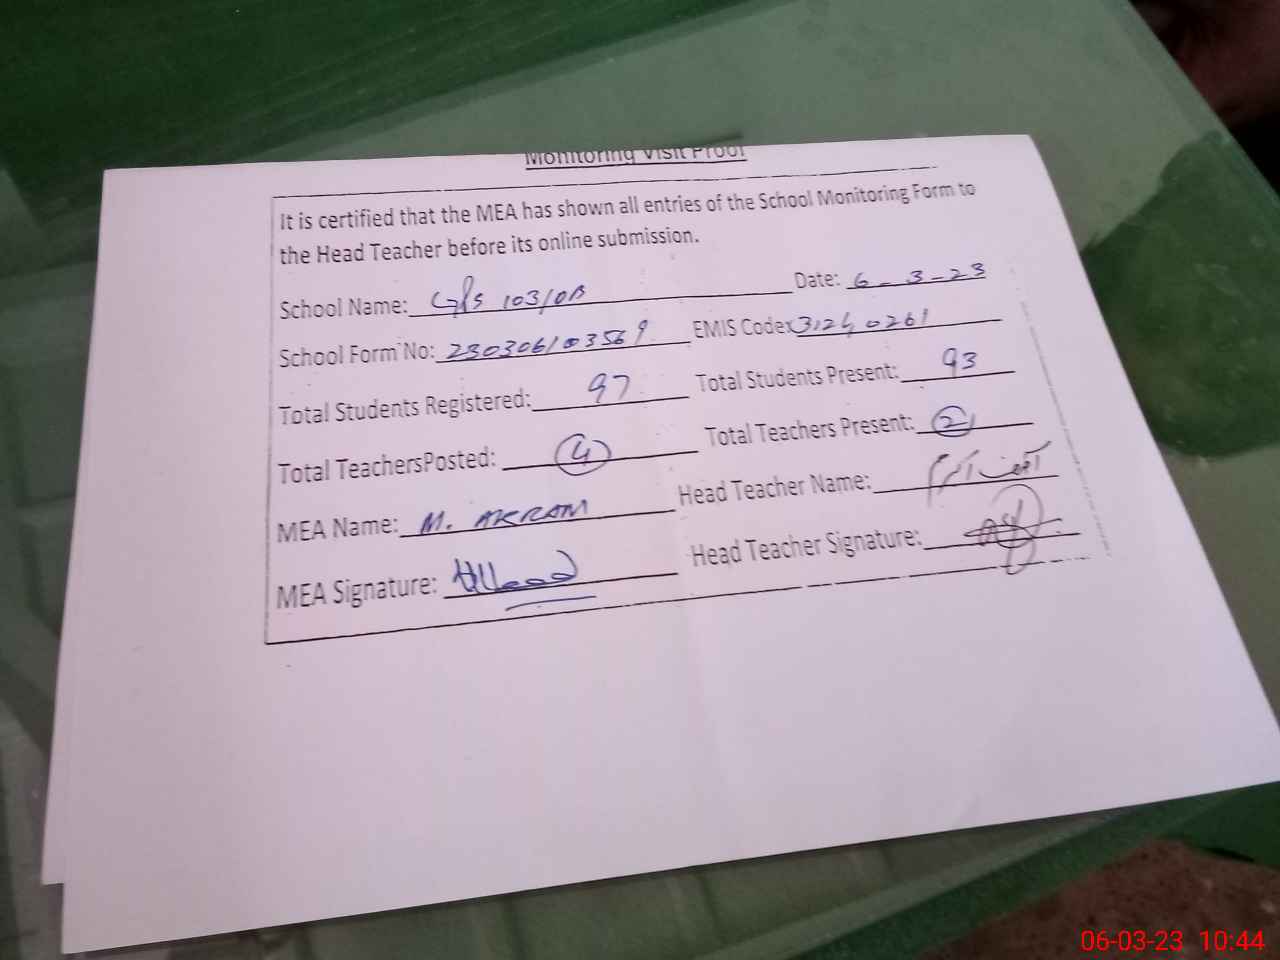 Monitoring Visit Proof
It is certified that the MEA has shown all entries of the School Monitoring Form to
the Head Teacher before its online submission.
School Name: G/S 103/DB Date: 6-3-23
School Form No: 230306103569 EMIS Code: 31240261
Total Students Registered: 97 Total Students Present: 93
Total TeachersPosted: 4 Total Teachers Present: 2
MEA Name: M. AKRAM Head Teacher Name:
MEA Signature: Head Teacher Signature:
06-03-23 10:44